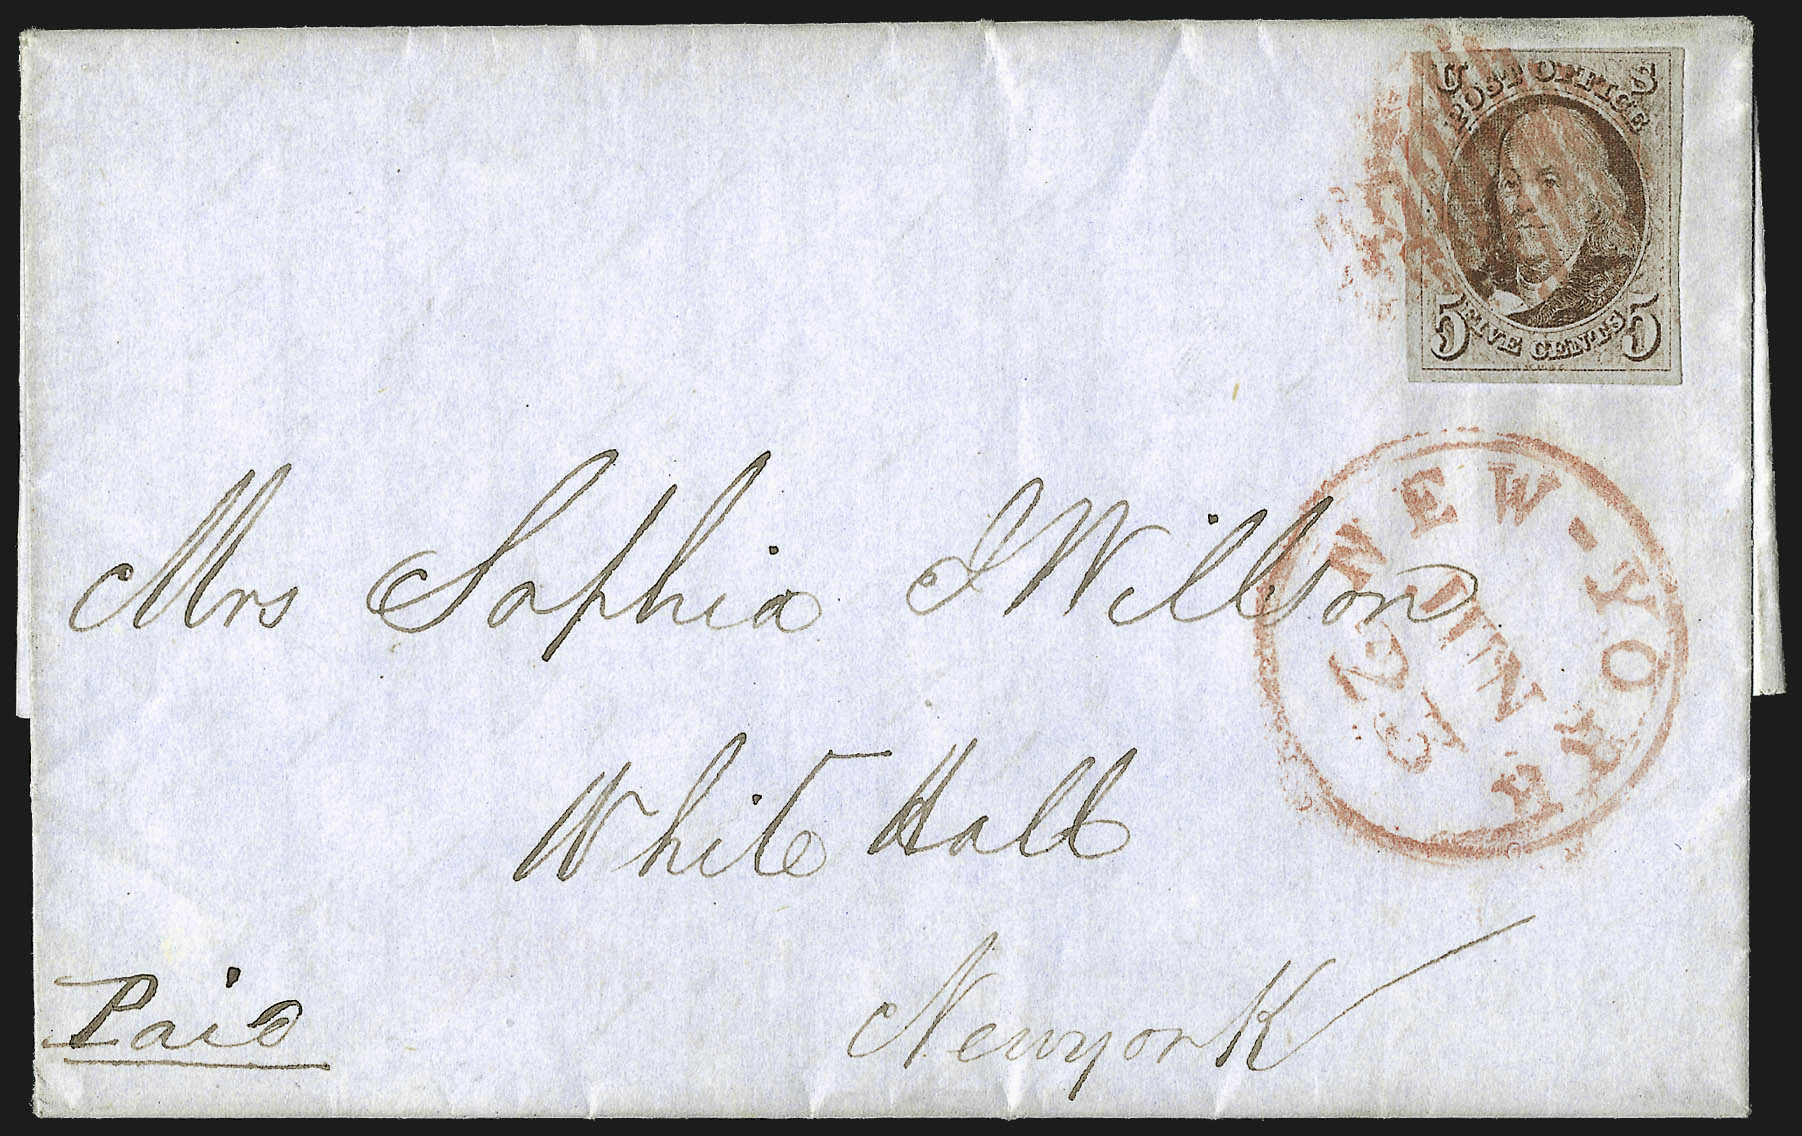 U S
POST OFFICE
5 FIVE CENTS 5
NEW-YORK
JUN
23
Mrs Sophia I Willson
White Hall
Newyork
Paid